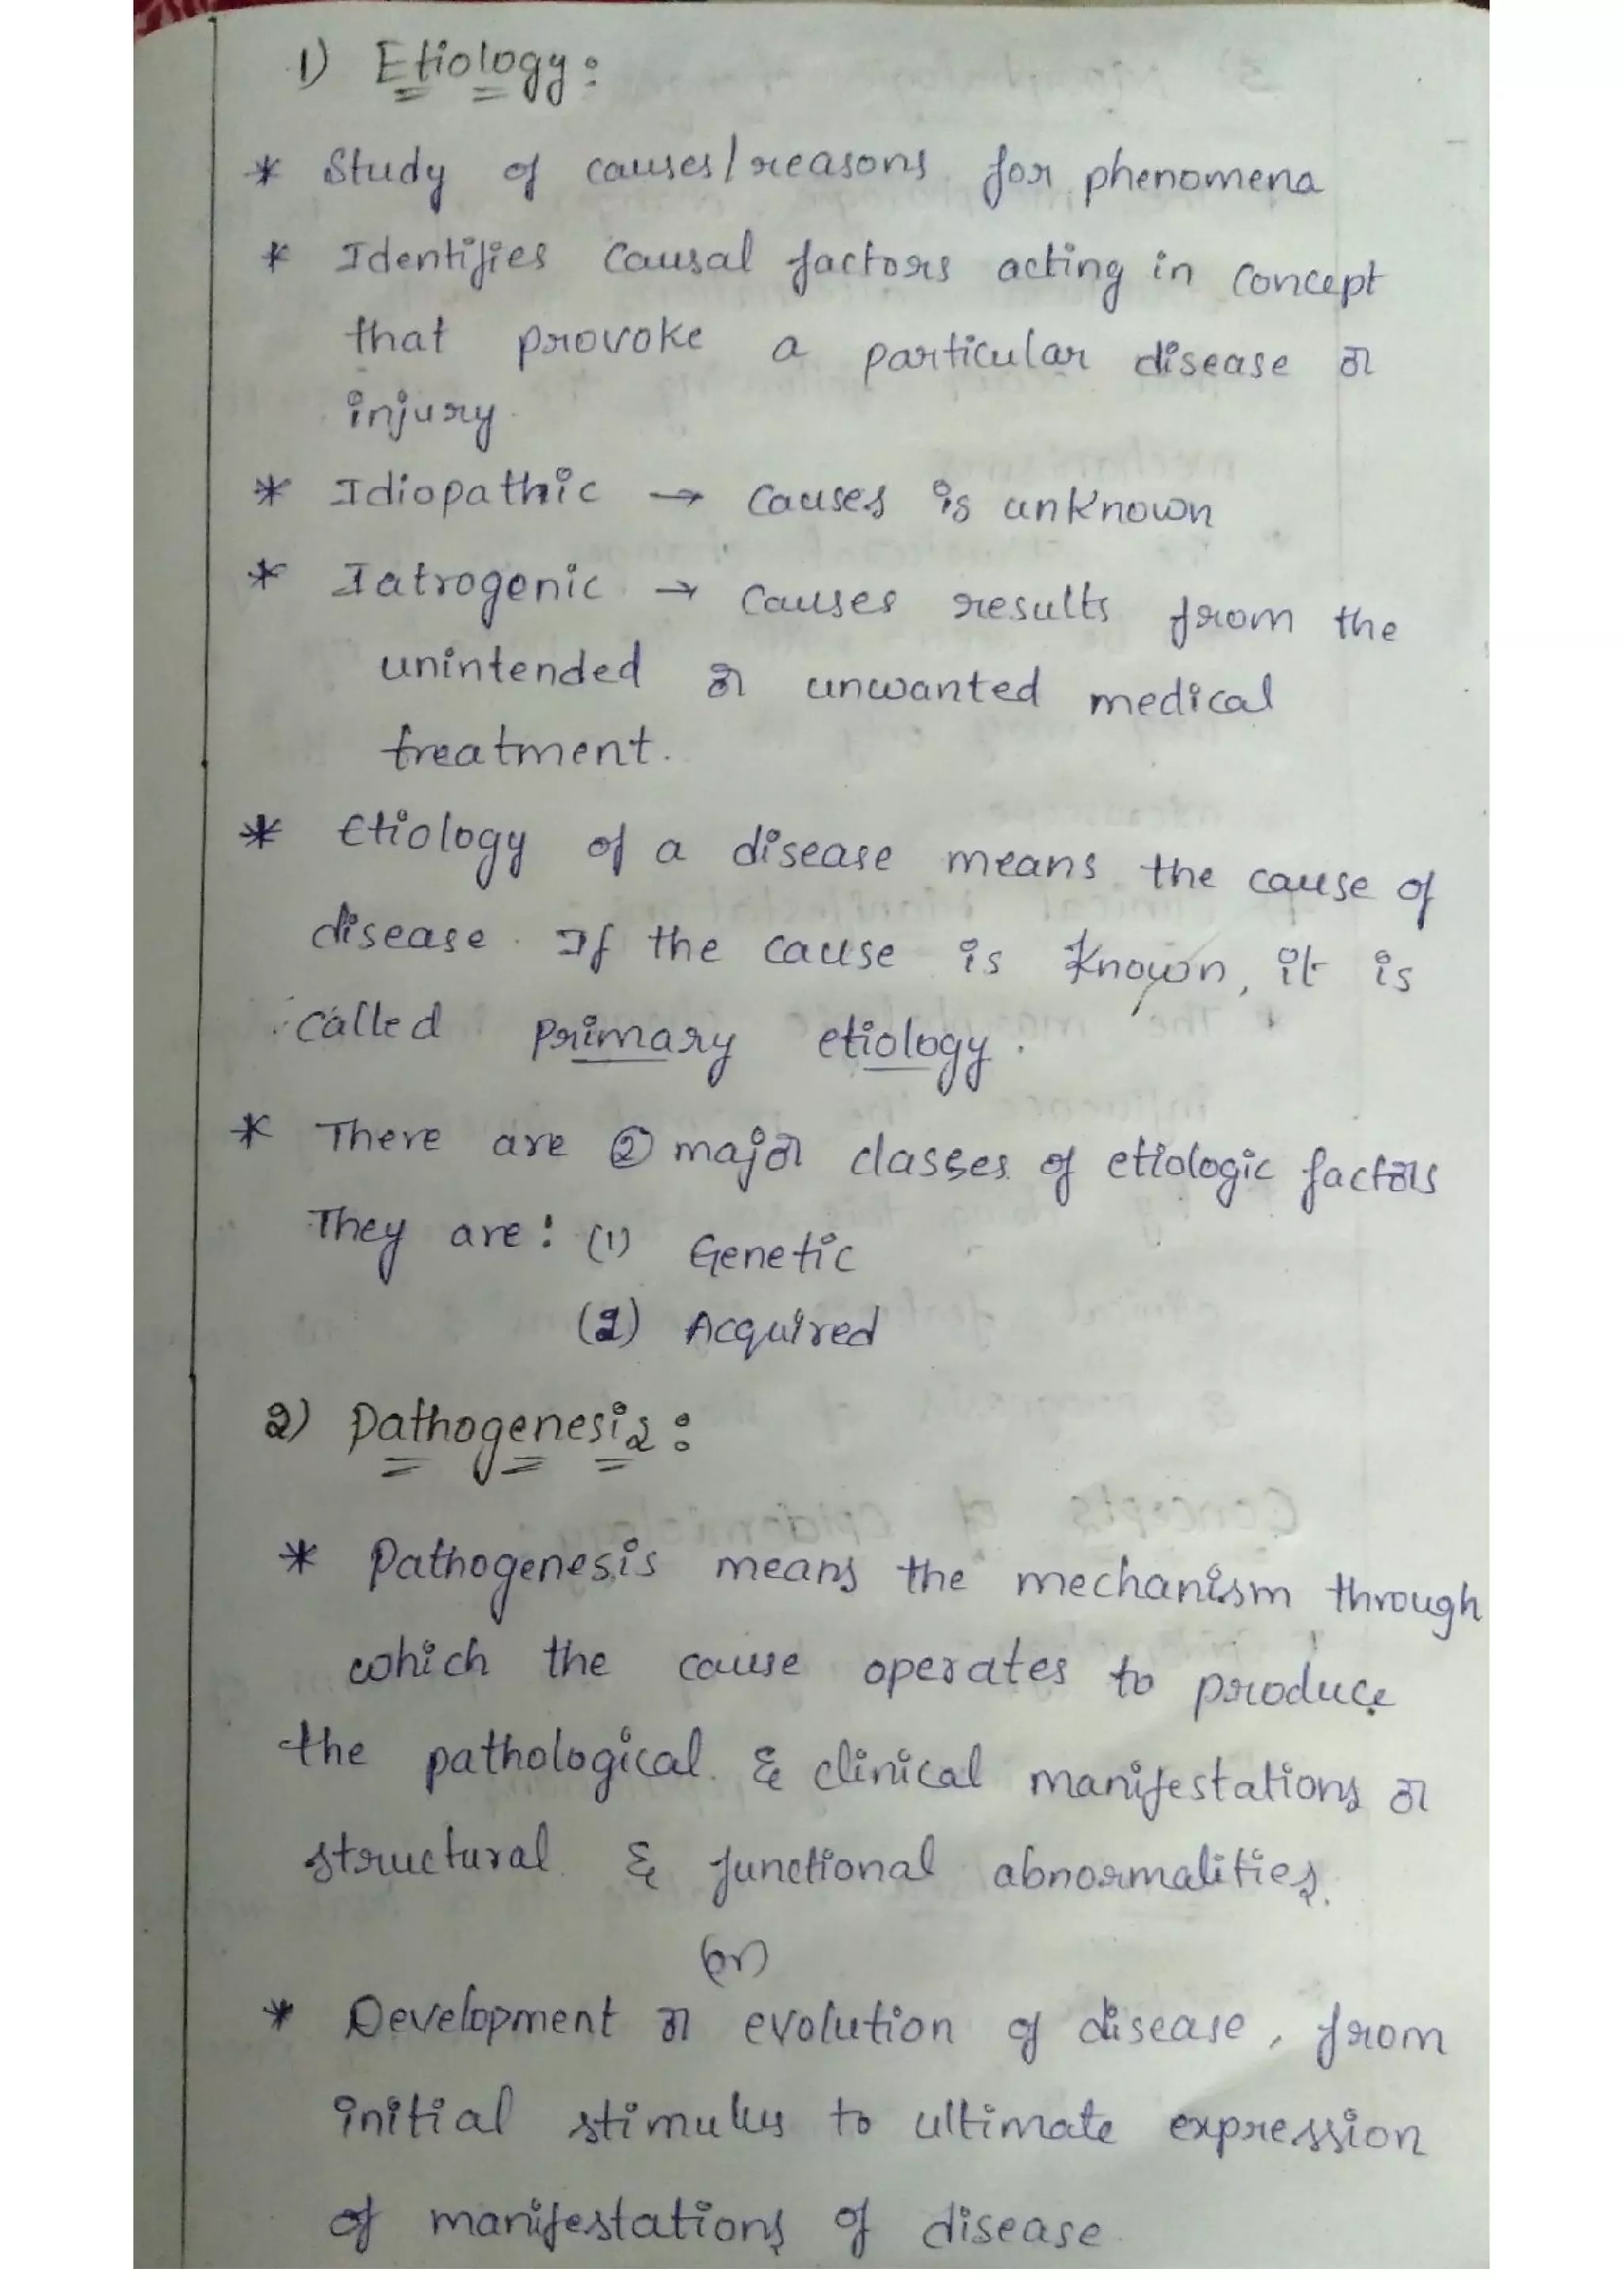 1) Etiology:
* Study of causes/reasons for phenomena
* Identifies Causal factors acting in concept
that provoke a particular disease or
injury.
* Idiopathic → Causes is unknown
* Iatrogenic → Causes results from the
unintended or unwanted medical
treatment.
* Etiology of a disease means the cause of
disease. If the cause is Known, it is
called primary etiology.
* There are ② major classes of etiologic factors
They are: (1) Genetic
(2) Acquired
2) Pathogenesis:
* Pathogenesis means the mechanism through
which the cause operates to produce
the pathological & clinical manifestations or
structural & functional abnormalities.
(or)
* Development or evolution of disease, from
initial stimulus to ultimate expression
of manifestations of disease.